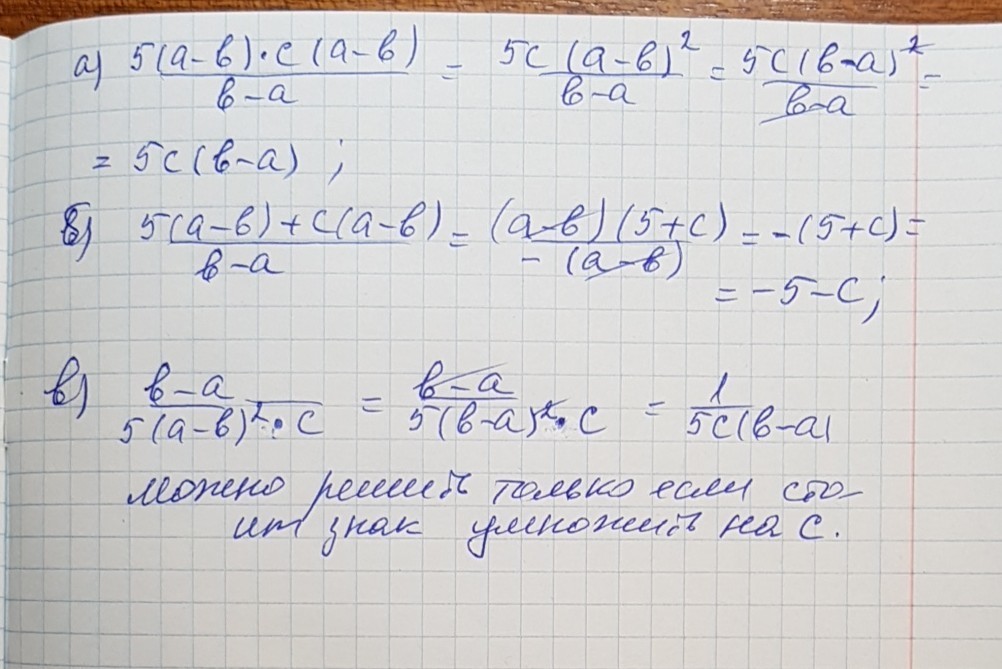 а) 5(a-b)·c(a-b) / b-a = 5c(a-b)² / b-a = 5c(b-a)² / b-a =
= 5c(b-a) ;
б) 5(a-b)+c(a-b) / b-a = (a-b)(5+c) / -(a-b) = -(5+c) =
= -5-c;
в) b-a / 5(a-b)²·c = b-a / 5(b-a)²·c = 1 / 5c(b-a)
можно решить только если сто-
ит знак умножить на c.